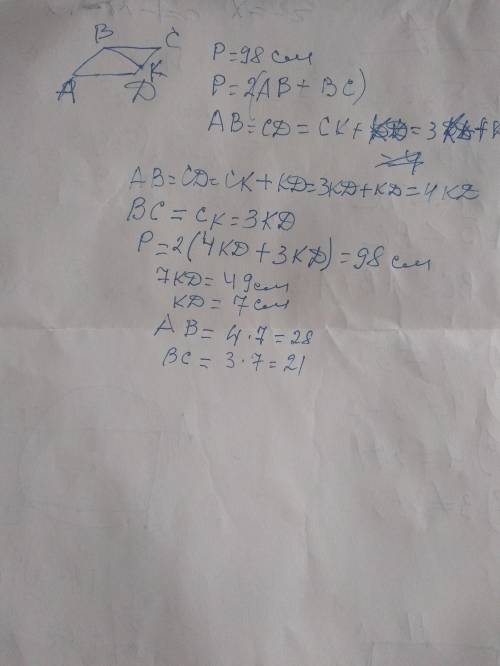 B C
K
A D
P=98 см
P=2(AB+BC)
AB=CD=CK+ =3
AB=CD=CK+KD=3KD+KD=4KD
BC=CK=3KD
P=2(4KD+3KD)=98 см
7KD=49 см
KD=7 см
AB=4·7=28
BC=3·7=21